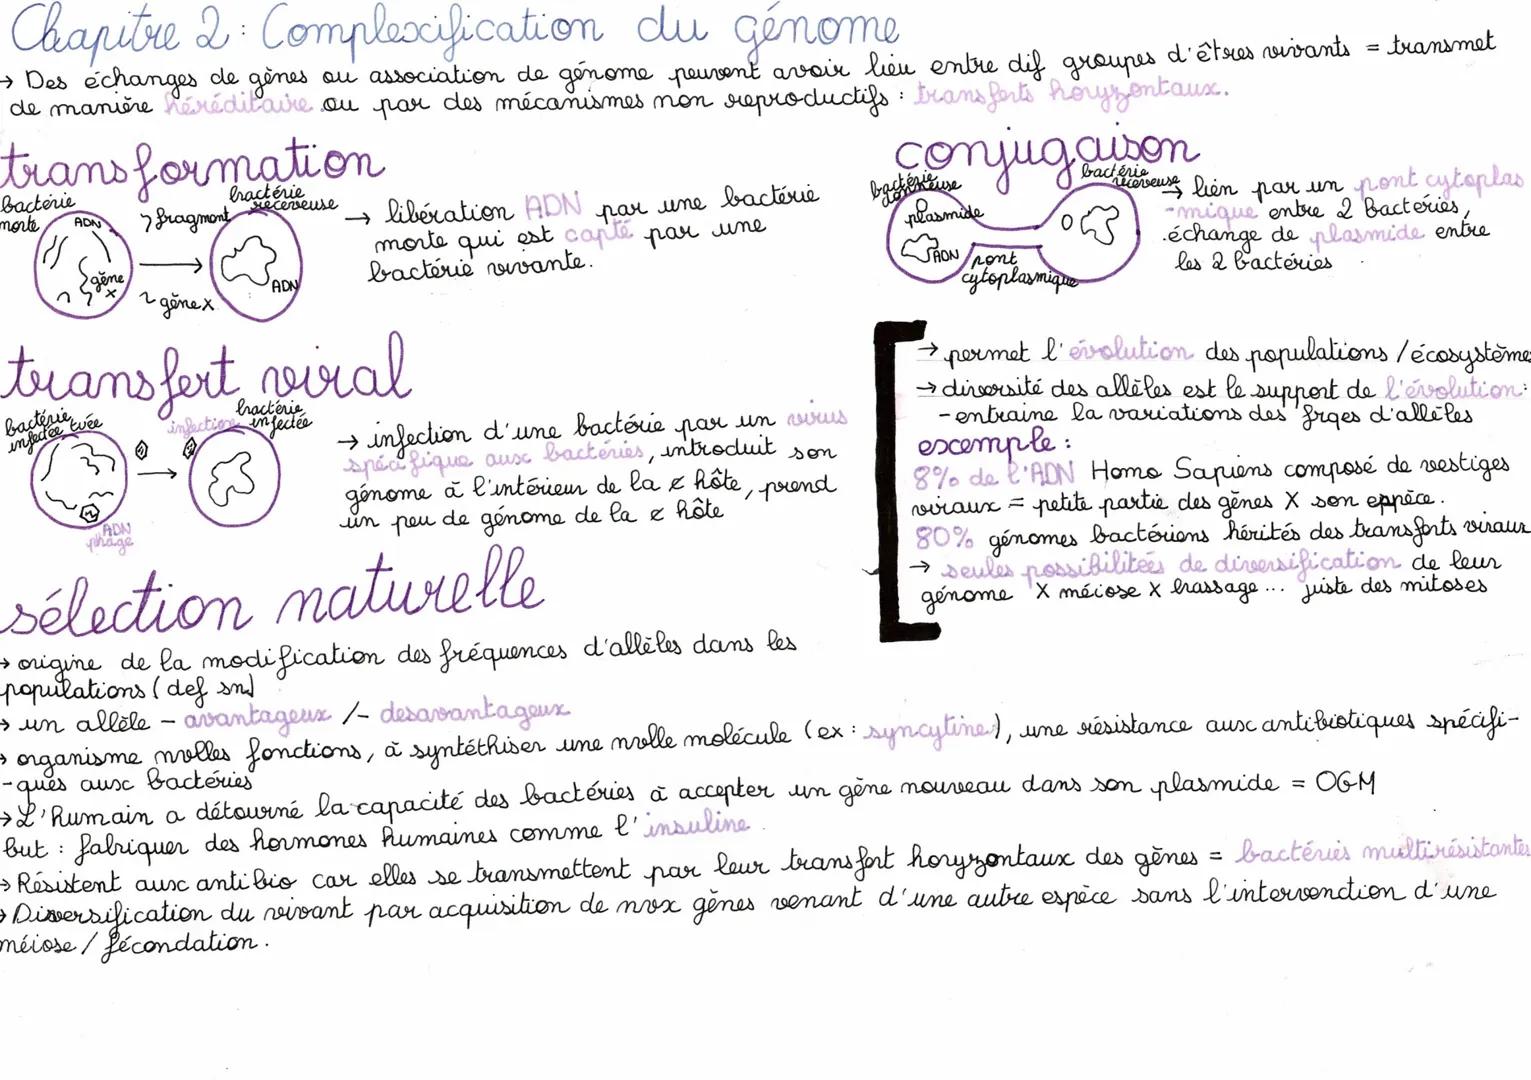 Chapitre 2 : Complexification du génome
→ Des échanges de gènes ou association de génome peuvent avoir lieu entre dif groupes d'êtres vivants = transmet
de manière héréditaire ou par des mécanismes non reproductifs : transferts horyzontaux.
transformation
bactérie morte
ADN
gène x
fragment
gène x
bactérie receveuse
ADN
→ libération ADN par une bactérie
morte qui est capté par une
bactérie vivante.
conjugaison
bactérie donneuse
plasmide
ADN
pont cytoplasmique
bactérie receveuse
→ lien par un pont cytoplas
-mique entre 2 bactéries,
échange de plasmide entre
les 2 bactéries
transfert viral
bactérie infectée tuée
ADN phage
infection
bactérie infectée
→ infection d'une bactérie par un virus
spécifique aux bactéries, introduit son
génome à l'intérieur de la ¢ hôte, prend
un peu de génome de la ¢ hôte
→ permet l'évolution des populations / écosystèmes
→ diversité des allèles est le support de l'évolution :
- entraine la variations des frqes d'allèles
exemple :
8% de l'ADN Homo Sapiens composé de vestiges
viraux = petite partie des gènes X son eppèce.
80% génomes bactériens hérités des transferts viraux
→ seules possibilitées de diversification de leur
génome X méiose X brassage... juste des mitoses
sélection naturelle
→ origine de la modification des fréquences d'allèles dans les
populations (def sn)
→ un allèle - avantageux /- desavantageux
→ organisme nvlles fonctions, à syntéthiser une nvlle molécule (ex : syncytine), une résistance aux antibiotiques spécifi-
-ques aux bactéries
→ L'humain a détourné la capacité des bactéries à accepter un gène nouveau dans son plasmide = OGM
but : fabriquer des hormones humaines comme l'insuline
→ Résistent aux antibio car elles se transmettent par leur transfert horyzontaux des gènes = bactéries multirésistantes
→ Diversification du vivant par acquisition de nvx gènes venant d'une autre espèce sans l'intervenction d'une
méiose / fécondation.